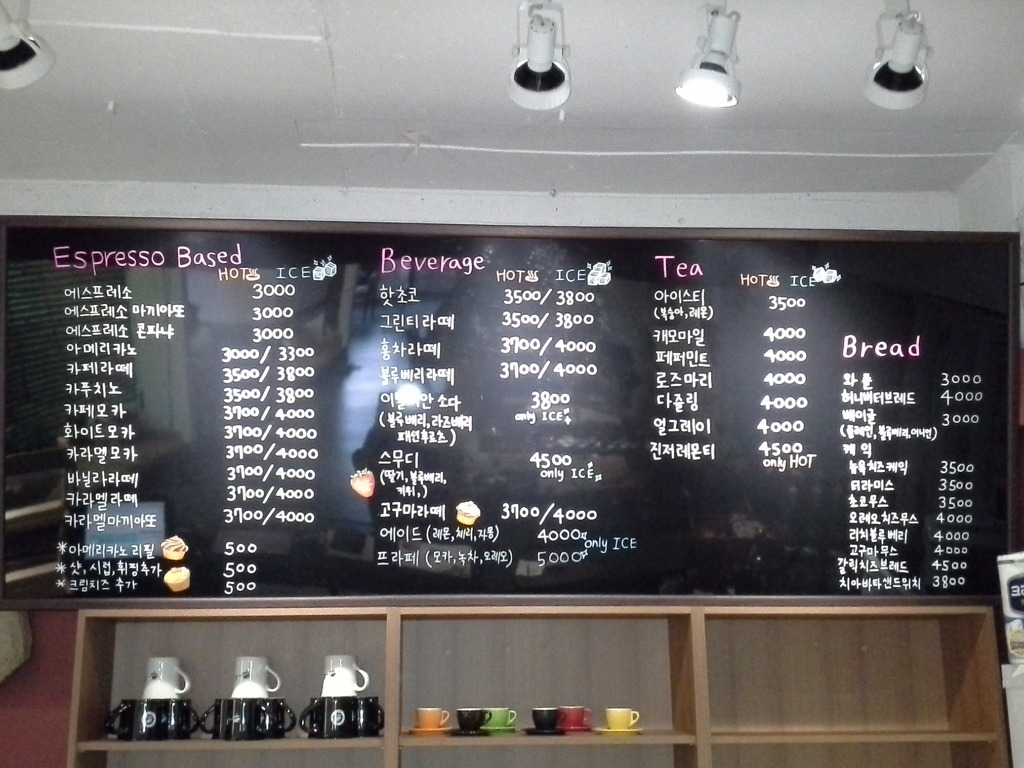 Espresso Based
HOT ICE
에스프레소 3000
에스프레소 마끼아또 3000
에스프레소 콘파냐 3000
아메리카노 3000/3300
카페라떼 3500/3800
카푸치노 3500/3800
카페모카 3700/4000
화이트모카 3700/4000
카라멜모카 3700/4000
바닐라라떼 3700/4000
카라멜라떼 3700/4000
카라멜마끼아또 3700/4000
*아메리카노 리필 500
*샷, 시럽, 휘핑추가 500
*크림치즈 추가 500
Beverage
HOT ICE
핫초코 3500/3800
그린티라떼 3500/3800
홍차라떼 3700/4000
블루베리라떼 3700/4000
소다 3800
(블루베리, 라즈베리 only ICE
패션후르츠)
스무디 4500
(딸기, 블루베리, only ICE
키위,)
고구마라떼 3700/4000
에이드 (레몬,체리,자몽) 4000 only ICE
프라페 (모카,녹차,오레오) 5000
Tea
HOT ICE
아이스티 3500
(복숭아,레몬)
캐모마일 4000
페퍼민트 4000
로즈마리 4000
다즐링 4000
얼그레이 4000
진저레몬티 4500
only HOT
Bread
와플 3000
허니버터브레드 4000
베이글 3000
(플레인,블루베리,어니언)
케익
뉴욕치즈케익 3500
티라미스 3500
초코무스 3500
오레오치즈무스 4000
리치블루베리 4000
고구마무스 4000
갈릭치즈브레드 4500
치아바타샌드위치 3800